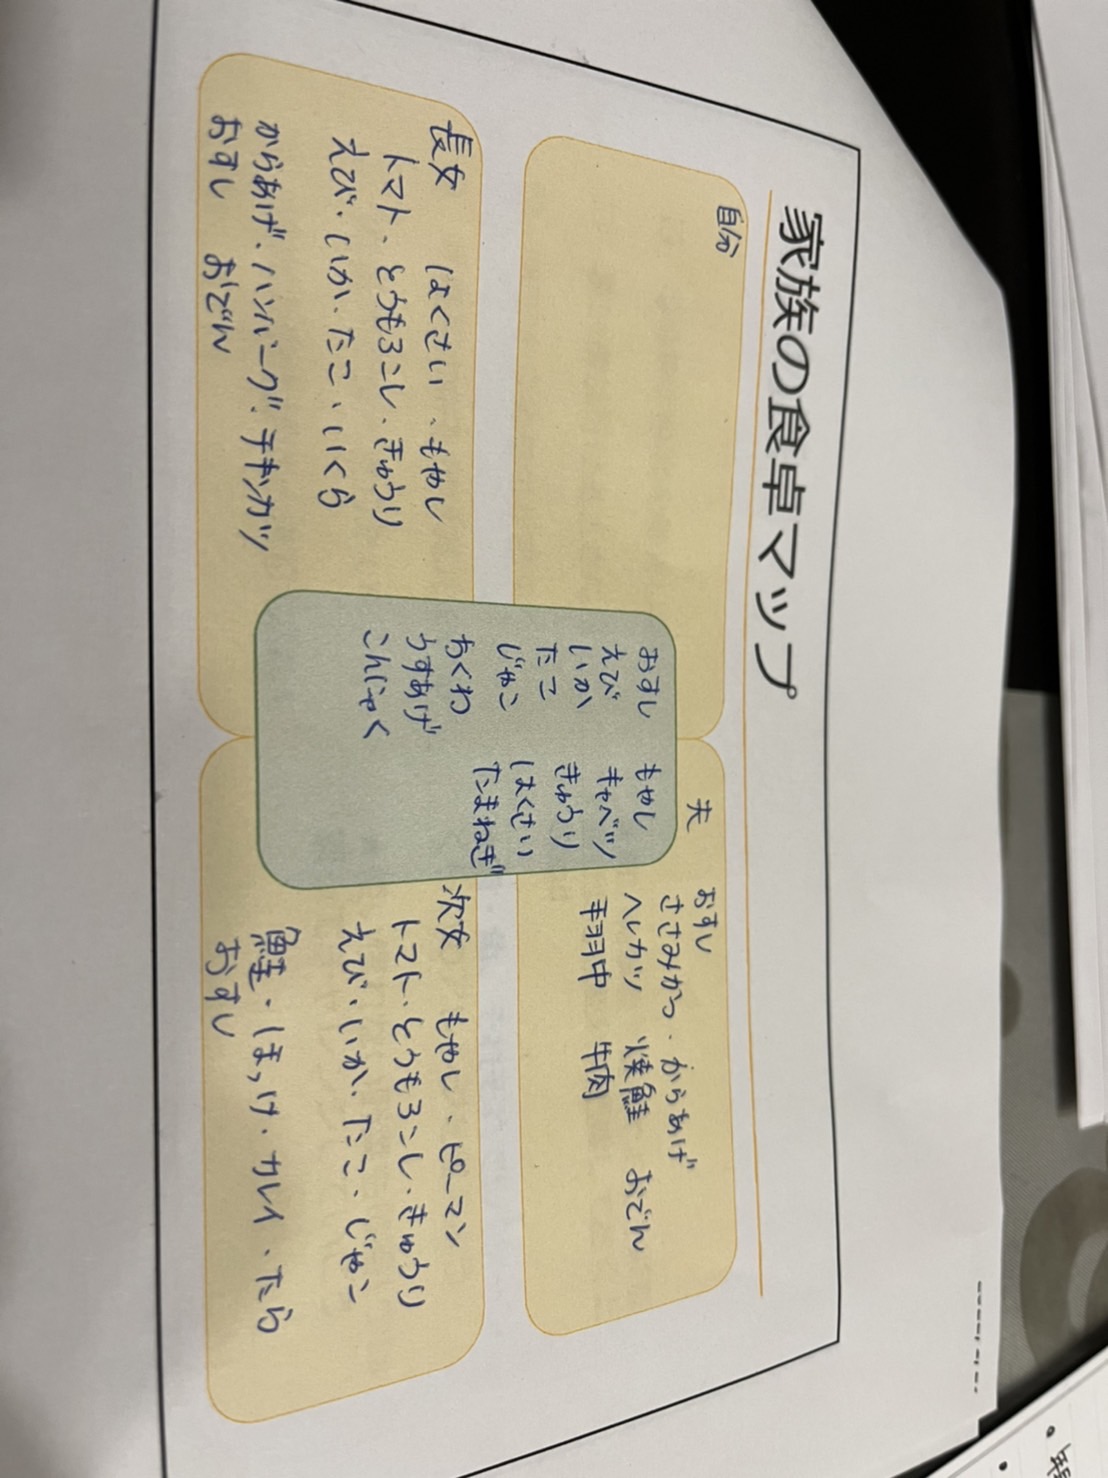 家族の食卓マップ
自分
夫
おすし
ささみかつ・からあげ
ヘレカツ 焼鮭 おでん
手羽中 牛肉
おすし もやし
えび キャベツ
いか きゅうり
たこ はくさい
じゃこ たまねぎ
ちくわ
うすあげ
こんにゃく
長女 はくさい、もやし
トマト、とうもろこし、きゅうり
えび・いか、たこ、いくら
からあげ、ハンバーグ、チキンカツ
おすし おでん
次女 もやし、ピーマン
トマト、とうもろこし、きゅうり
えび・いか、たこ、じゃこ
鮭・ほっけ・カレイ、たら
おすし